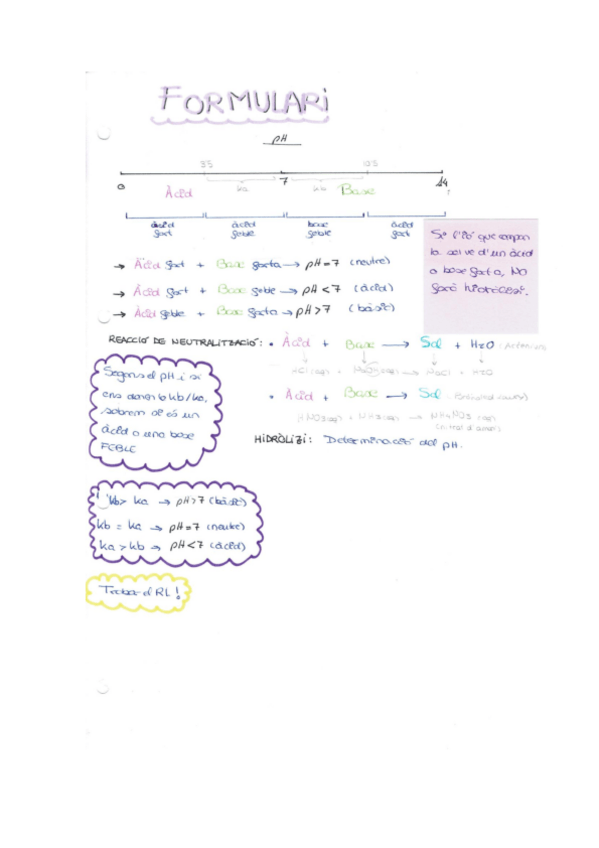 FORMULARI
pH
3'5 10'5
0 7 14
Àcid ka kb Base
àcid fort àcid feble base feble àcid fort
Si l'ió que compon
la sal ve d'un àcid
o base forta, NO
farà hidròlisi.
→ Àcid fort + Base forta → pH=7 (neutre)
→ Àcid fort + Base feble → pH <7 (àcid)
→ Àcid feble + Base forta → pH>7 (bàsic)
REACCIÓ DE NEUTRALITZACIÓ: • Àcid + Base → Sal + H2O
HCl (aq) + NaOH (aq) → NaCl + H2O
• Àcid + Base → Sal
HNO3 (aq) + NH3 (aq) → NH4NO3 (aq)
HIDRÒLISI: Determinació del pH.
Segons el pH i si
ens donen la kb/ka,
sabrem si és un
àcid o una base
FEBLE
kb> ka → pH>7 (bàsic)
kb = ka → pH=7 (neutre)
ka > kb → pH<7 (àcid)
Trobar el RL!